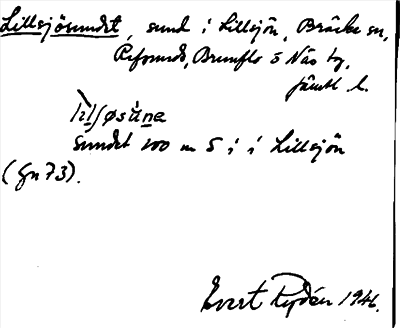 Lillsjösundet, sund i Lillsjön, Bräcke sn,
Refsunds, Brunflo o Näs tg,
Jämtl l.
sundet 200 m S i i Lillsjön
(Gn 73).
Evert Rydén 1946.